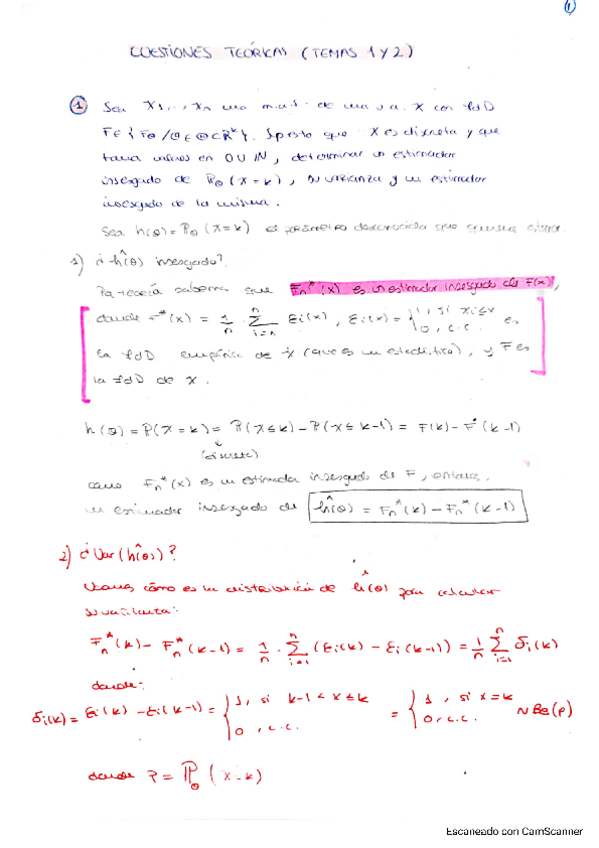 1
CUESTIONES TEÓRICAS (TEMAS 1 Y 2)
1 Sea X1,..,Xn una m.a.s de una v.a. X con fdD
F∈{Fθ/θ∈Θ⊂R^k}. Spsto que X es discreta y que
toma valores en 0 U IN, determinar un estimador
insesgado de Pθ(X=k), su varianza y un estimador
insesgado de la misma.
Sea h(θ)=Pθ(X=k) el parámetro desconocido que queremos estimar.
1) ¿ĥ(θ) insesgado?
Por teoría sabemos que Fn*(x) es un estimador insesgado de F(x),
donde F*(x) = 1/n · Σ_{i=n}^{n} εi(x), εi(x) = { 1, si xi≤x
0, c.c. es
la fdD empírica de X (que es un estadístico), y F es
la fdD de X.
h(θ) = P(X=k) = P(X≤k) - P(X≤k-1) = F(k) - F(k-1)
(discreta)
como Fn*(x) es un estimador insesgado de F, entonces,
un estimador insesgado de ĥ(θ) = Fn*(k) - Fn*(k-1)
2) ¿Var(ĥ(θ))?
Veamos cómo es la distribución de ĥ(θ) para calcular
su varianza:
Fn*(k) - Fn*(k-1) = 1/n · Σ_{i=1}^{n} (εi(k) - εi(k-1)) = 1/n Σ_{i=1}^{n} δi(k)
donde:
δi(k) = εi(k) - εi(k-1) = { 1, si k-1 < x ≤ k = { 1, si x=k ~ Be(p)
0, c.c. 0, c.c.
donde P = Pθ(X=k)
Escaneado con CamScanner